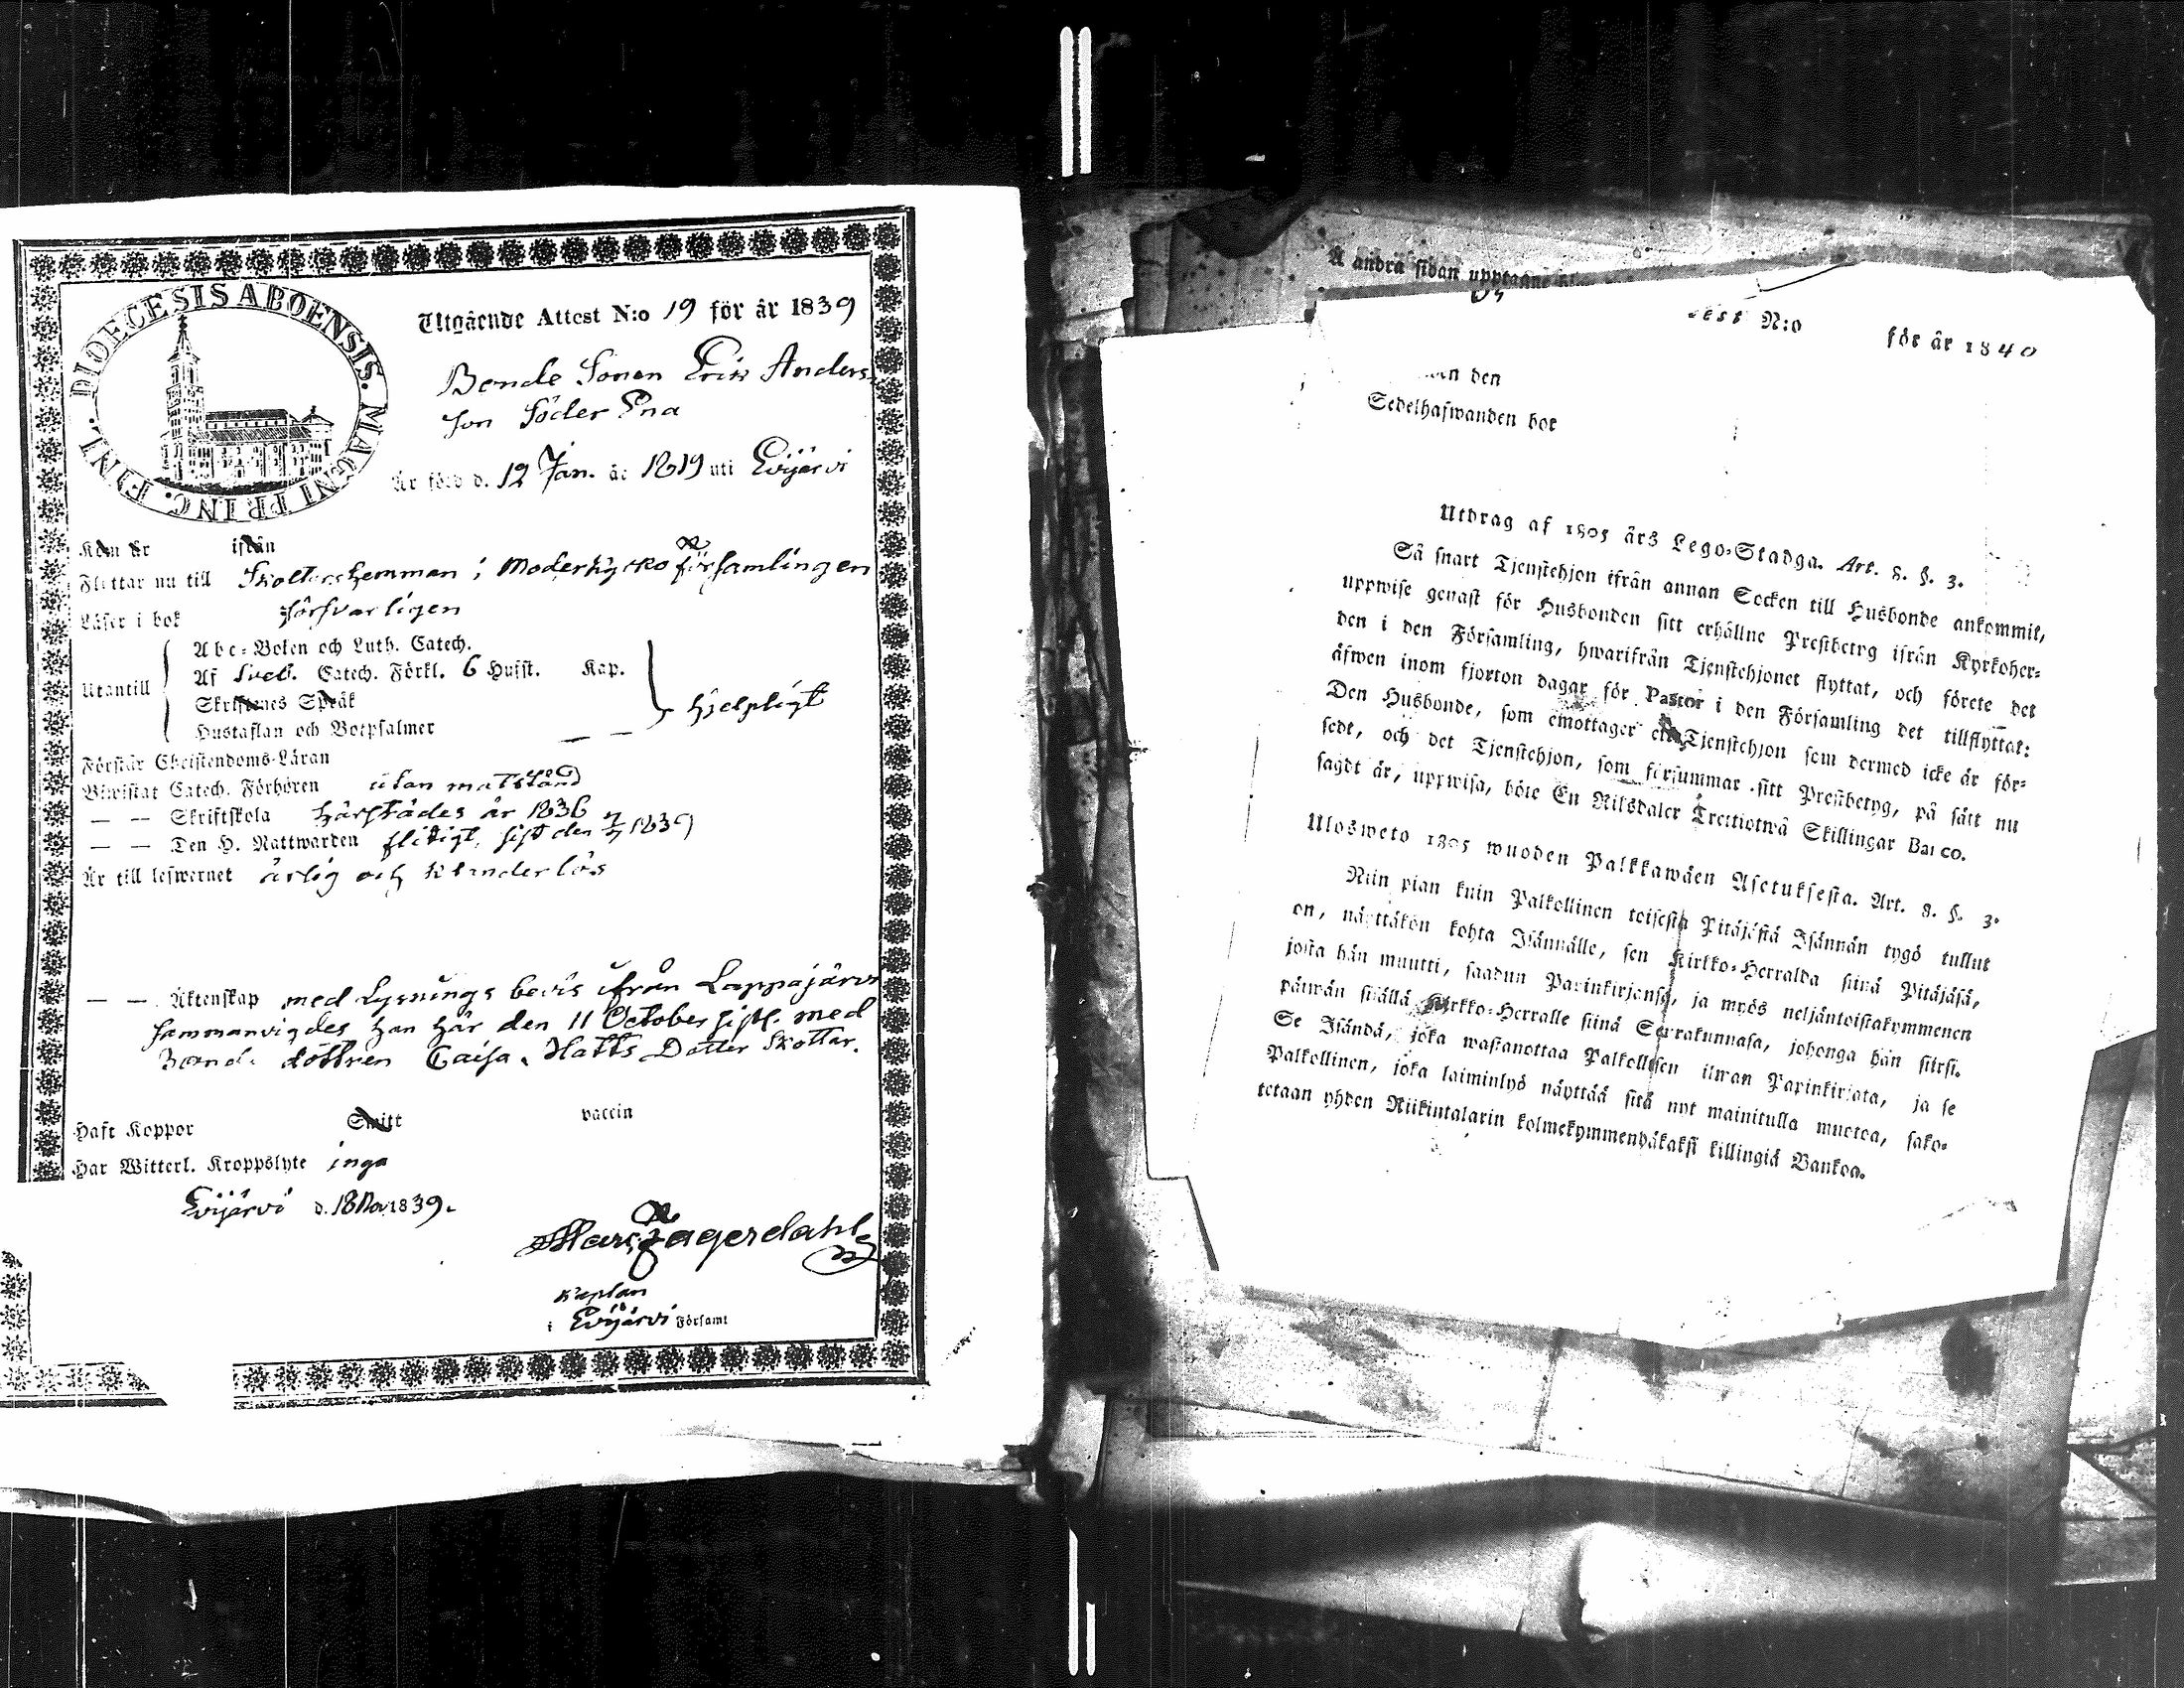 DIOECESIS ABOENSIS. MAGNI PRINC. FINL.
Utgående Attest N:o 19 för år 1839
Bonde Sonen Erik Anders-
son Söder Ena
Är född d. 12 Jan. år 1819 uti Evijärvi
Kom år ifrån
Flyttar nu till Skottars hemman i Moderkyrko församlingen
Läser i bok försvarligen
Utantill
Abc-Boken och Luth. Catech.
Af Sveb. Catech. Förkl. 6 Hufst. Kap.
Skriftenes Språk
Hustaflan och Botpsalmer
hjelpligt
Förstår Christendoms-Läran
Biwistat Catech. Förhören utan motstånd
— — Skriftskola härstädes år 1836
— — Den H. Nattwarden flitigt, sist den 1839
Är till lefwernet ärlig och klanderlös
— — Äktenskap med Lysnings bevis ifrån Lappajärvi
sammanvigdes han här den 11 October sistl. med
Bonde dottren Caisa Matts Dotter Skottar.
Haft Koppor Smitt vaccin
Har Witterl. Kroppslyte inga
Evijärvi d. 18 Nov 1839.
Marc. Fagerdahl
Kaplan
i Evijärvi Församl
Å andra sidan upptagne
N:o för år 1840
den
Sedelhafwanden bor
Utdrag af 1805 års Lego-Stadga. Art. 8. §. 3.
Så snart Tjenstehjon ifrån annan Socken till Husbonde ankommit,
uppwise genast för Husbonden sitt erhållne Prestbetyg ifrån Kyrkoher-
den i den Församling, hwarifrån Tjenstehjonet flyttat, och förete det
äfwen inom fjorton dagar för Pastor i den Församling det tillflyttat:
Den Husbonde, som emottager ett Tjenstehjon som dermed icke är för-
sedt, och det Tjenstehjon, som försummar sitt Prestbetyg, på sätt nu
sagdt är, uppwisa, böte En Riksdaler Trettiotwå Skillingar Banco.
Ulosweto 1805 wuoden Palkkawäen Asetuksesta. Art. 8. §. 3.
Niin pian kuin Palkollinen toisesta Pitäjästä Isännän tygö tullut
on, näyttäkön kohta Isännälle, sen Kirkko-Herralda siinä Pitäjäsä,
josta hän muutti, saadun Papinkirjansa, ja myös neljäntoistakymmenen
päiwän sisällä Kirkko-Herralle siinä Seurakunnasa, johonga hän siirsi.
Se Isändä, joka wastanottaa Palkollisen ilman Papinkirjata, ja se
Palkollinen, joka laiminlyö näyttää sitä nyt mainitulla muotoa, sako-
tetaan yhden Riikintalarin kolmekymmenäkaksi killingiä Bankoa.